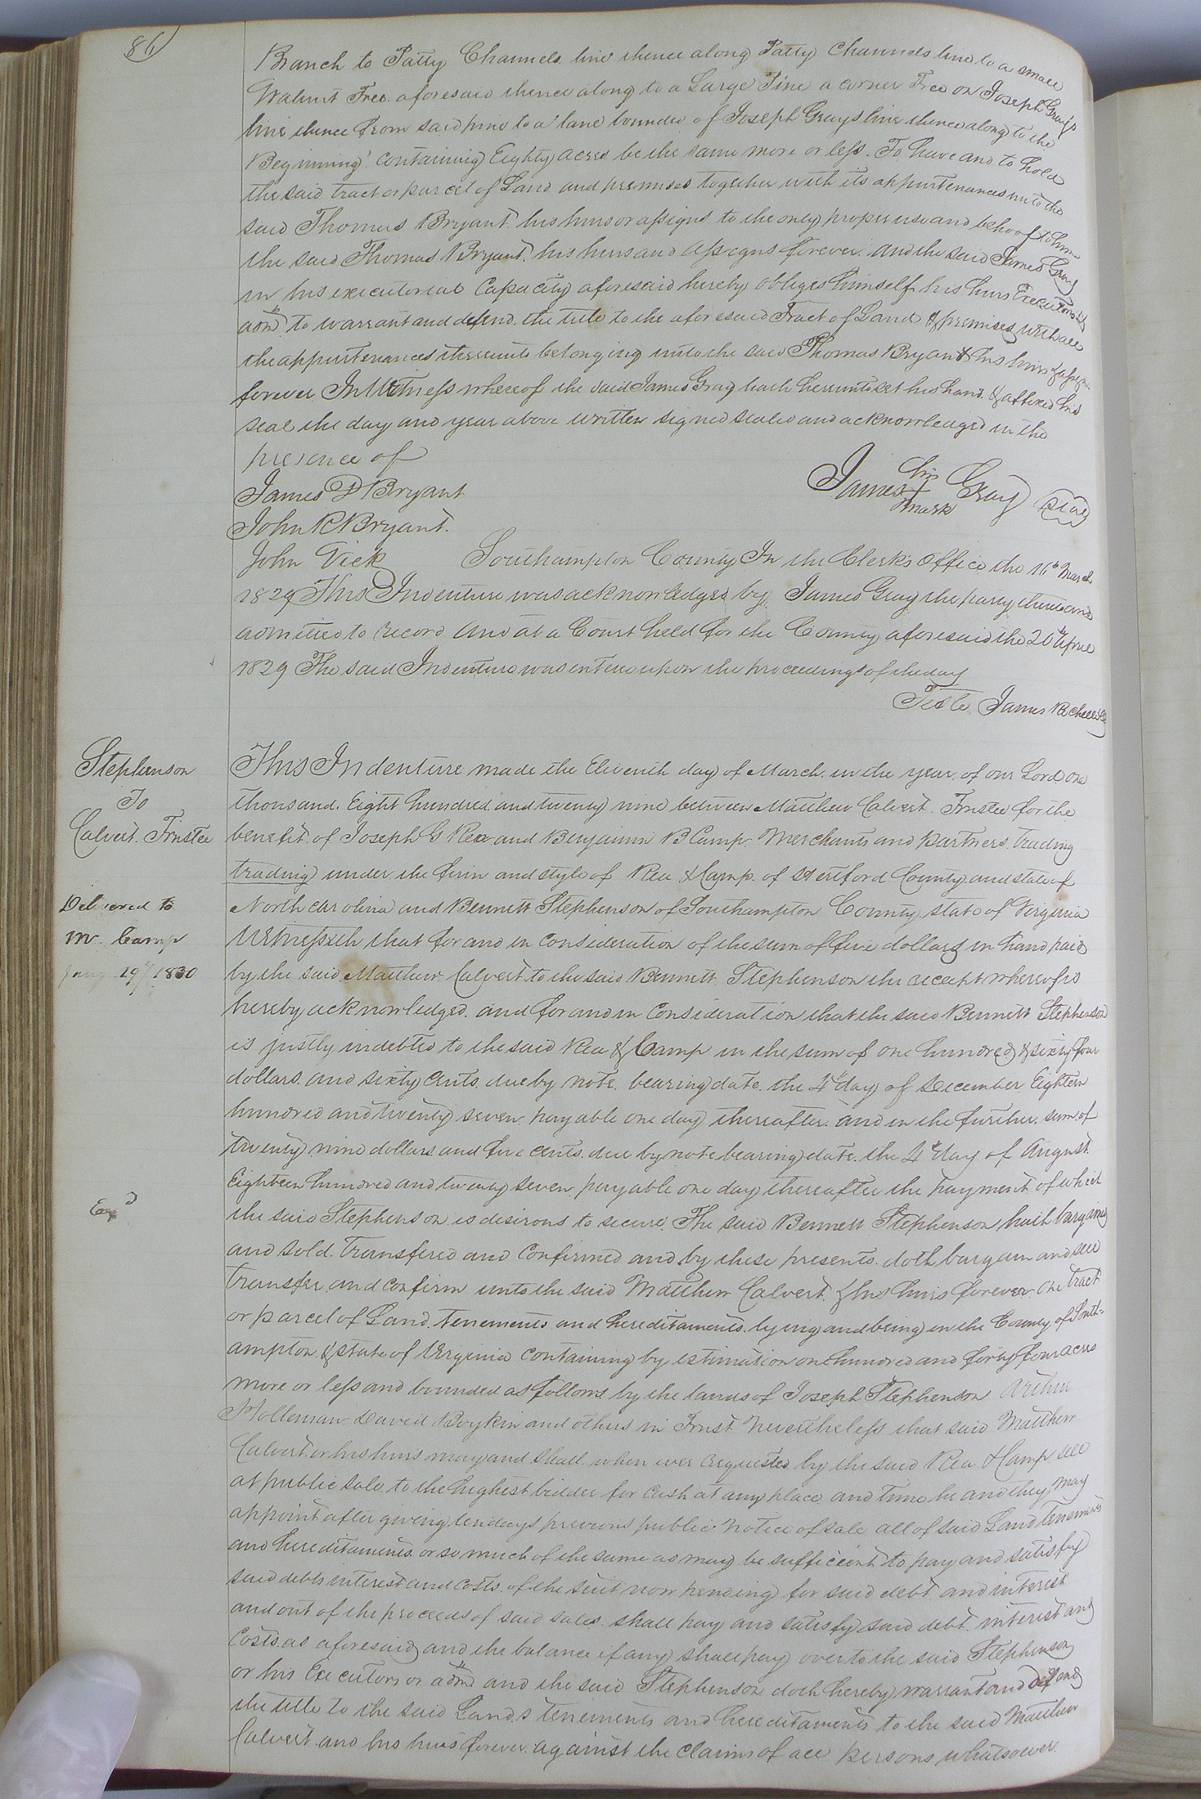 86
Branch to Patty Channels line thence along Patty Channels line to a small
Walnut Tree aforesaid thence along to a Large Pine a corner Tree on Joseph Grays
line thence from said pine to a lane bounded of Joseph Grays line thence along to the
Beginning containing Eighty acres be the same more or less. To have and to hold
the said tract or parcel of Land and premises together with its appurtenances unto the
said Thomas Bryant his heirs or assigns to the only proper use and behoof of him
the said Thomas Bryant his heirs and assigns forever. And the said James Gray
in his executorial Capacity aforesaid hereby obliges himself his heirs Executors &
admrs to warrant and defend the title to the aforesaid Tract of Land & premises with all
the appurtenances thereunto belonging unto the said Thomas Bryant & his heirs & assigns
forever In Witness whereof the said James Gray hath hereunto set his hand & affixed his
seal the day and year above written signed sealed and acknowledged in the
presence of
James D Bryant
James his + mark Gray (Seal)
John R Bryant.
John Vick
Southampton County In the Clerk's Office the 16th March
1829 This Indenture was acknowledged by James Gray the party thereto and
admitted to record And at a Court held for the County aforesaid the 20th April
1829 The said Indenture was entered upon the proceedings of the day
Teste James Rochelle Ck
Stephenson
To
Calvert Trustee
Delivered to
Mr. Camp
Jany 19th 1830
Exd
This Indenture made the Eleventh day of March in the year of our Lord one
thousand Eight hundred and twenty nine between Matthew Calvert Trustee for the
benefit of Joseph G Rea and Benjamin B Camp Merchants and Partners trading
trading under the firm and style of Rea & Camp of Hertford County and state of
North Carolina and Bennett Stephenson of Southampton County state of Virginia
Witnesseth that for and in Consideration of the sum of five dollars in hand paid
by the said Matthew Calvert to the said Bennett Stephenson the receipt whereof is
hereby acknowledged and for and in Consideration that the said Bennett Stephenson
is justly indebted to the said Rea & Camp in the sum of one hundred & sixty four
dollars and sixty cents due by note bearing date the 4th day of December Eighteen
hundred and twenty seven payable one day thereafter and in the further sum of
twenty nine dollars and five cents due by note bearing date the 4th day of August
Eighteen hundred and twenty seven payable one day thereafter the payment of which
the said Stephenson is desirous to secure. The said Bennett Stephenson hath bargained
and sold transfered and confirmed and by these presents doth bargain and sell
transfer and confirm unto the said Matthew Calvert & his heirs forever One tract
or parcel of Land tenements and hereditaments lying and being in the County of South-
ampton & state of Virginia containing by estimation one hundred and forty four acres
more or less and bounded as follows by the lands of Joseph Stephenson Arthur
Holleman David Boykin and others in Trust Nevertheless that said Matthew
Calvert or his heirs may and shall when ever requested by the said Rea & Camp sell
at public sale to the highest bidder for cash at any place and time he and they may
appoint after giving ten days previous public notice of sale all of said Land tenements
and hereditaments or so much of the same as may be sufficient to pay and satisfy
said debts interest and costs of the suit now pending for said debt and interest
and out of the proceeds of said sales shall pay and satisfy said debt interest and
Costs as aforesaid and the balance if any shall pay over to the said Stephenson
or his Executors or admrs and the said Stephenson doth hereby warrant and defend
the title to the said Lands tenements and hereditaments to the said Matthew
Calvert and his heirs forever against the claims of all persons whatsoever.